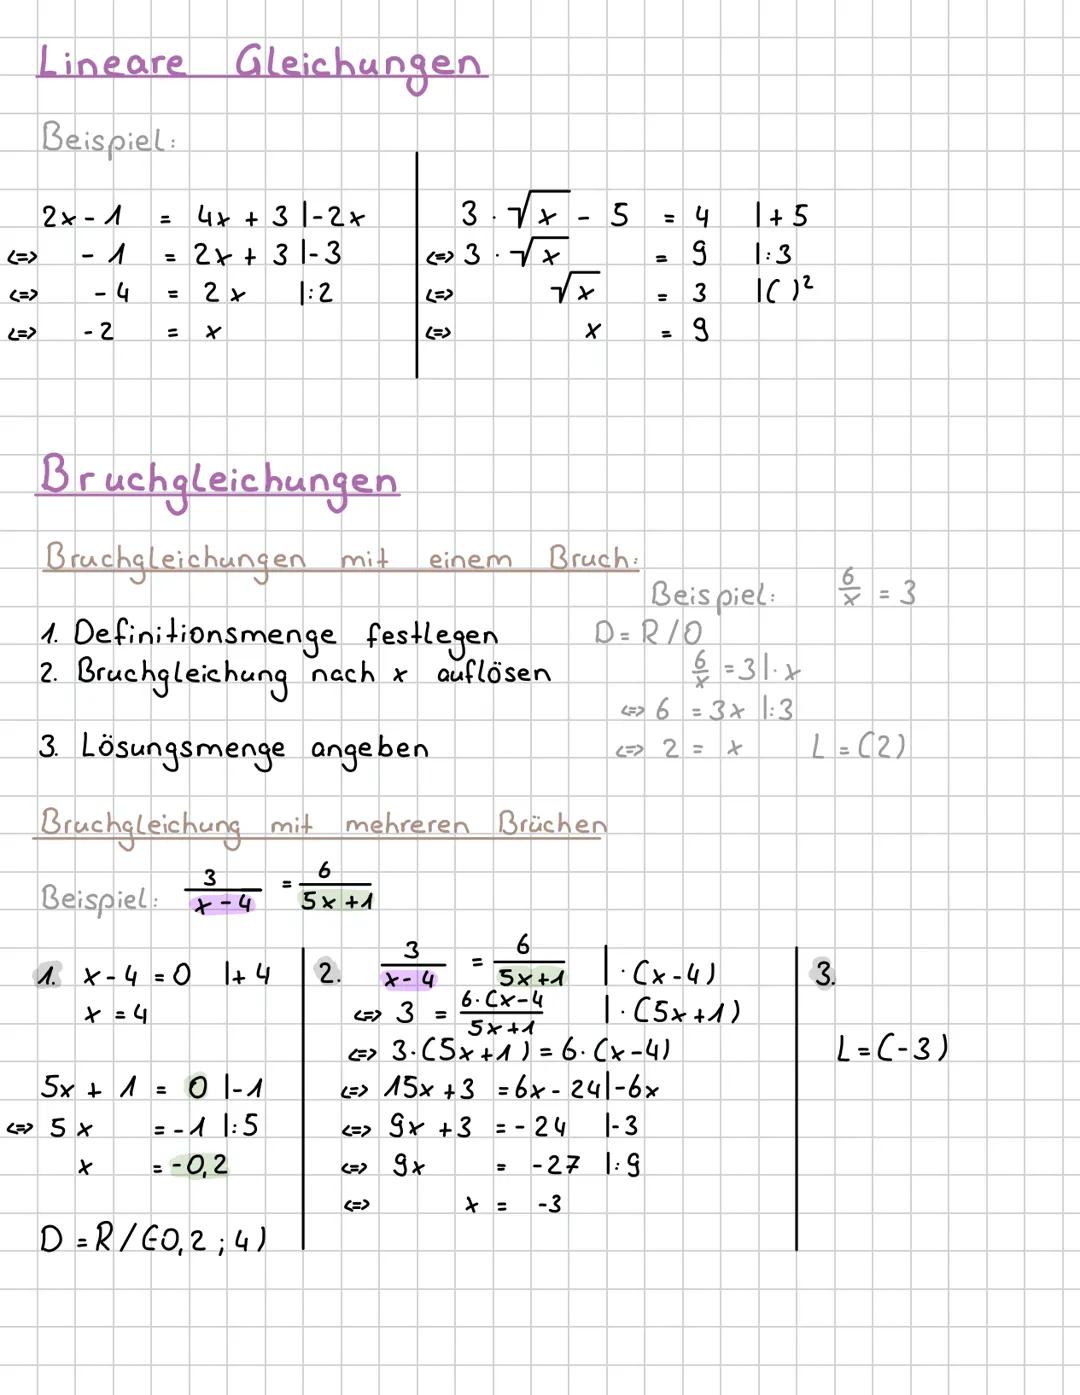 Lineare Gleichungen
Beispiel:
2x - 1 = 4x + 3 |-2x
<=> - 1 = 2x + 3 |-3
<=> - 4 = 2x |:2
<=> - 2 = x
3 · √x - 5 = 4 |+ 5
<=> 3 · √x = 9 |:3
<=> √x = 3 |( )²
<=> x = 9
Bruchgleichungen
Bruchgleichungen mit einem Bruch:
Beispiel: 6/x = 3
1. Definitionsmenge festlegen
D = R / 0
2. Bruchgleichung nach x auflösen
6/x = 3 |· x
<=> 6 = 3x |:3
3. Lösungsmenge angeben
<=> 2 = x L = (2)
Bruchgleichung mit mehreren Brüchen
Beispiel: 3/(x - 4) = 6/(5x + 1)
1. x - 4 = 0 |+ 4
x = 4
5x + 1 = 0 |-1
<=> 5x = -1 |:5
x = -0,2
D = R / (-0,2 ; 4)
2. 3/(x - 4) = 6/(5x + 1) |· (x - 4)
<=> 3 = 6·(x-4/5x+1 |· (5x + 1)
<=> 3·(5x + 1) = 6·(x - 4)
<=> 15x + 3 = 6x - 24 |-6x
<=> 9x + 3 = - 24 |-3
<=> 9x = -27 |:9
<=> x = -3
3.
L = (-3)